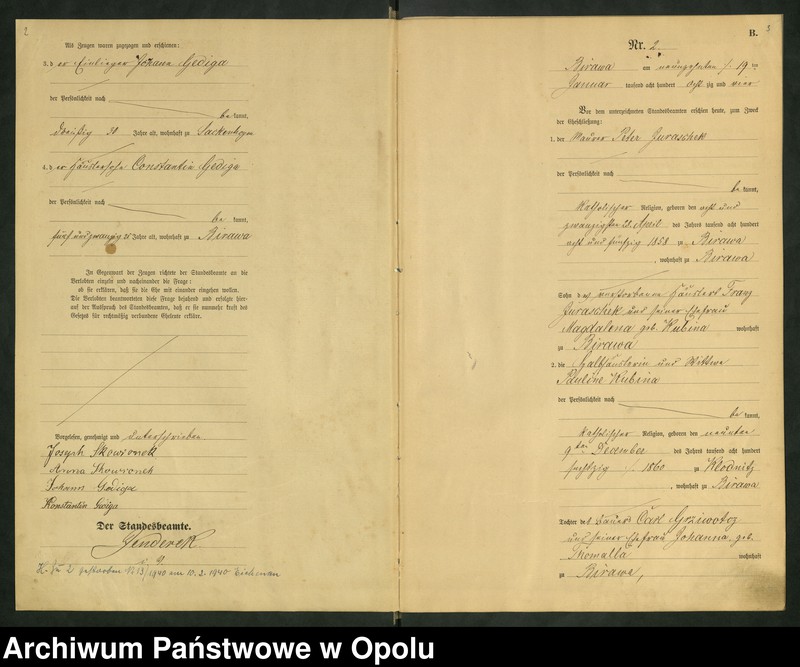 2
Als Zeugen waren zugezogen und erschienen:
3. der Einlieger Johann Gediga
der Persönlichkeit nach
be kannt,
dreißig 30 Jahre alt, wohnhaft zu Sackenhoym
4. der Häuslersohn Constantin Gediga
der Persönlichkeit nach
be kannt,
fünf und zwanzig 25 Jahre alt, wohnhaft zu Birawa
In Gegenwart der Zeugen richtete der Standesbeamte an die
Verlobten einzeln und nacheinander die Frage:
ob sie erklären, daß sie die Ehe mit einander eingehen wollen.
Die Verlobten beantworteten diese Frage bejahend und erfolgte hier-
auf der Ausspruch des Standesbeamten, daß er sie nunmehr kraft des
Gesetzes für rechtmäßig verbundene Eheleute erkläre.
Vorgelesen, genehmigt und unterschrieben
Joseph Skowronek
Anna Skowronek
Johann Gediga
Konstantin Gediga
Der Standesbeamte.
Jenderek
2 gestorben 1940 am 10.2.1940
3
B.
Nr. 2
Birawa am neunzehnten 19 ten
Januar tausend acht hundert acht zig und vier
Vor dem unterzeichneten Standesbeamten erschien heute, zum Zweck
der Eheschließung:
1. der Maurer Peter Juraschek
der Persönlichkeit nach
be kannt,
katholischer Religion, geboren den acht und
zwanzigsten 28. April des Jahres tausend acht hundert
acht und fünfzig 1858 zu Birawa
, wohnhaft zu Birawa
Sohn des verstorbenen Häuslers Franz
Juraschek und seiner Ehefrau
Magdalena geb. Kubina wohnhaft
zu Birawa
2. die Halbhäuslerin und Wittwe
Pauline Kubina
der Persönlichkeit nach
be kannt,
katholischer Religion, geboren den neunten
9 ten December des Jahres tausend acht hundert
sechszig 1860 zu Klodnitz
, wohnhaft zu Birawa
Tochter des Bauers Carl Grziwotz
und seiner Ehefrau Johanna, geb.
wohnhaft
zu Birawa,
Archiwum Państwowe w Opolu